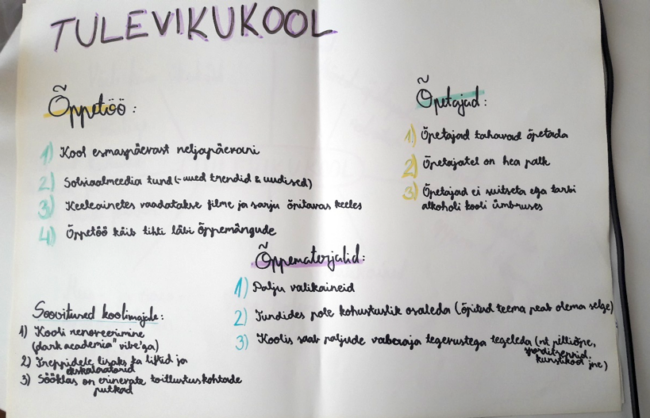 TULEVIKUKOOL
Õppetöö:
1) Kool esmaspäevast neljapäevani
2) Sotsiaalmeedia tund (-uued trendid & uudised)
3) Keeleainetes vaadatakse filme ja sarju õpitavas keeles
4) Õppetöö käib tihti läbi õppemängude
Õpetajad:
1) Õpetajad tahavad õpetada
2) Õpetajatel on hea palk
3) Õpetajad ei suitseta ega tarbi
alkoholi kooli ümbruses
Õppematerjalid:
1) Palju valikaineid
2) Tundides pole kohustuslik osaleda (õpitud teema peab olema selge)
3) Koolis saab paljude vabaaja tegevustega tegeleda (nt pilliõpe,
sporditrennid,
kunstikool jne)
Soovitused koolimajade:
1) Kooli renoveerimine
(dark academia" vibe'ga)
2) Treppidele lisaks ka liftid ja
eskalaatorid
3) Sööklas on erinevate toitlustuskohtade
putkad